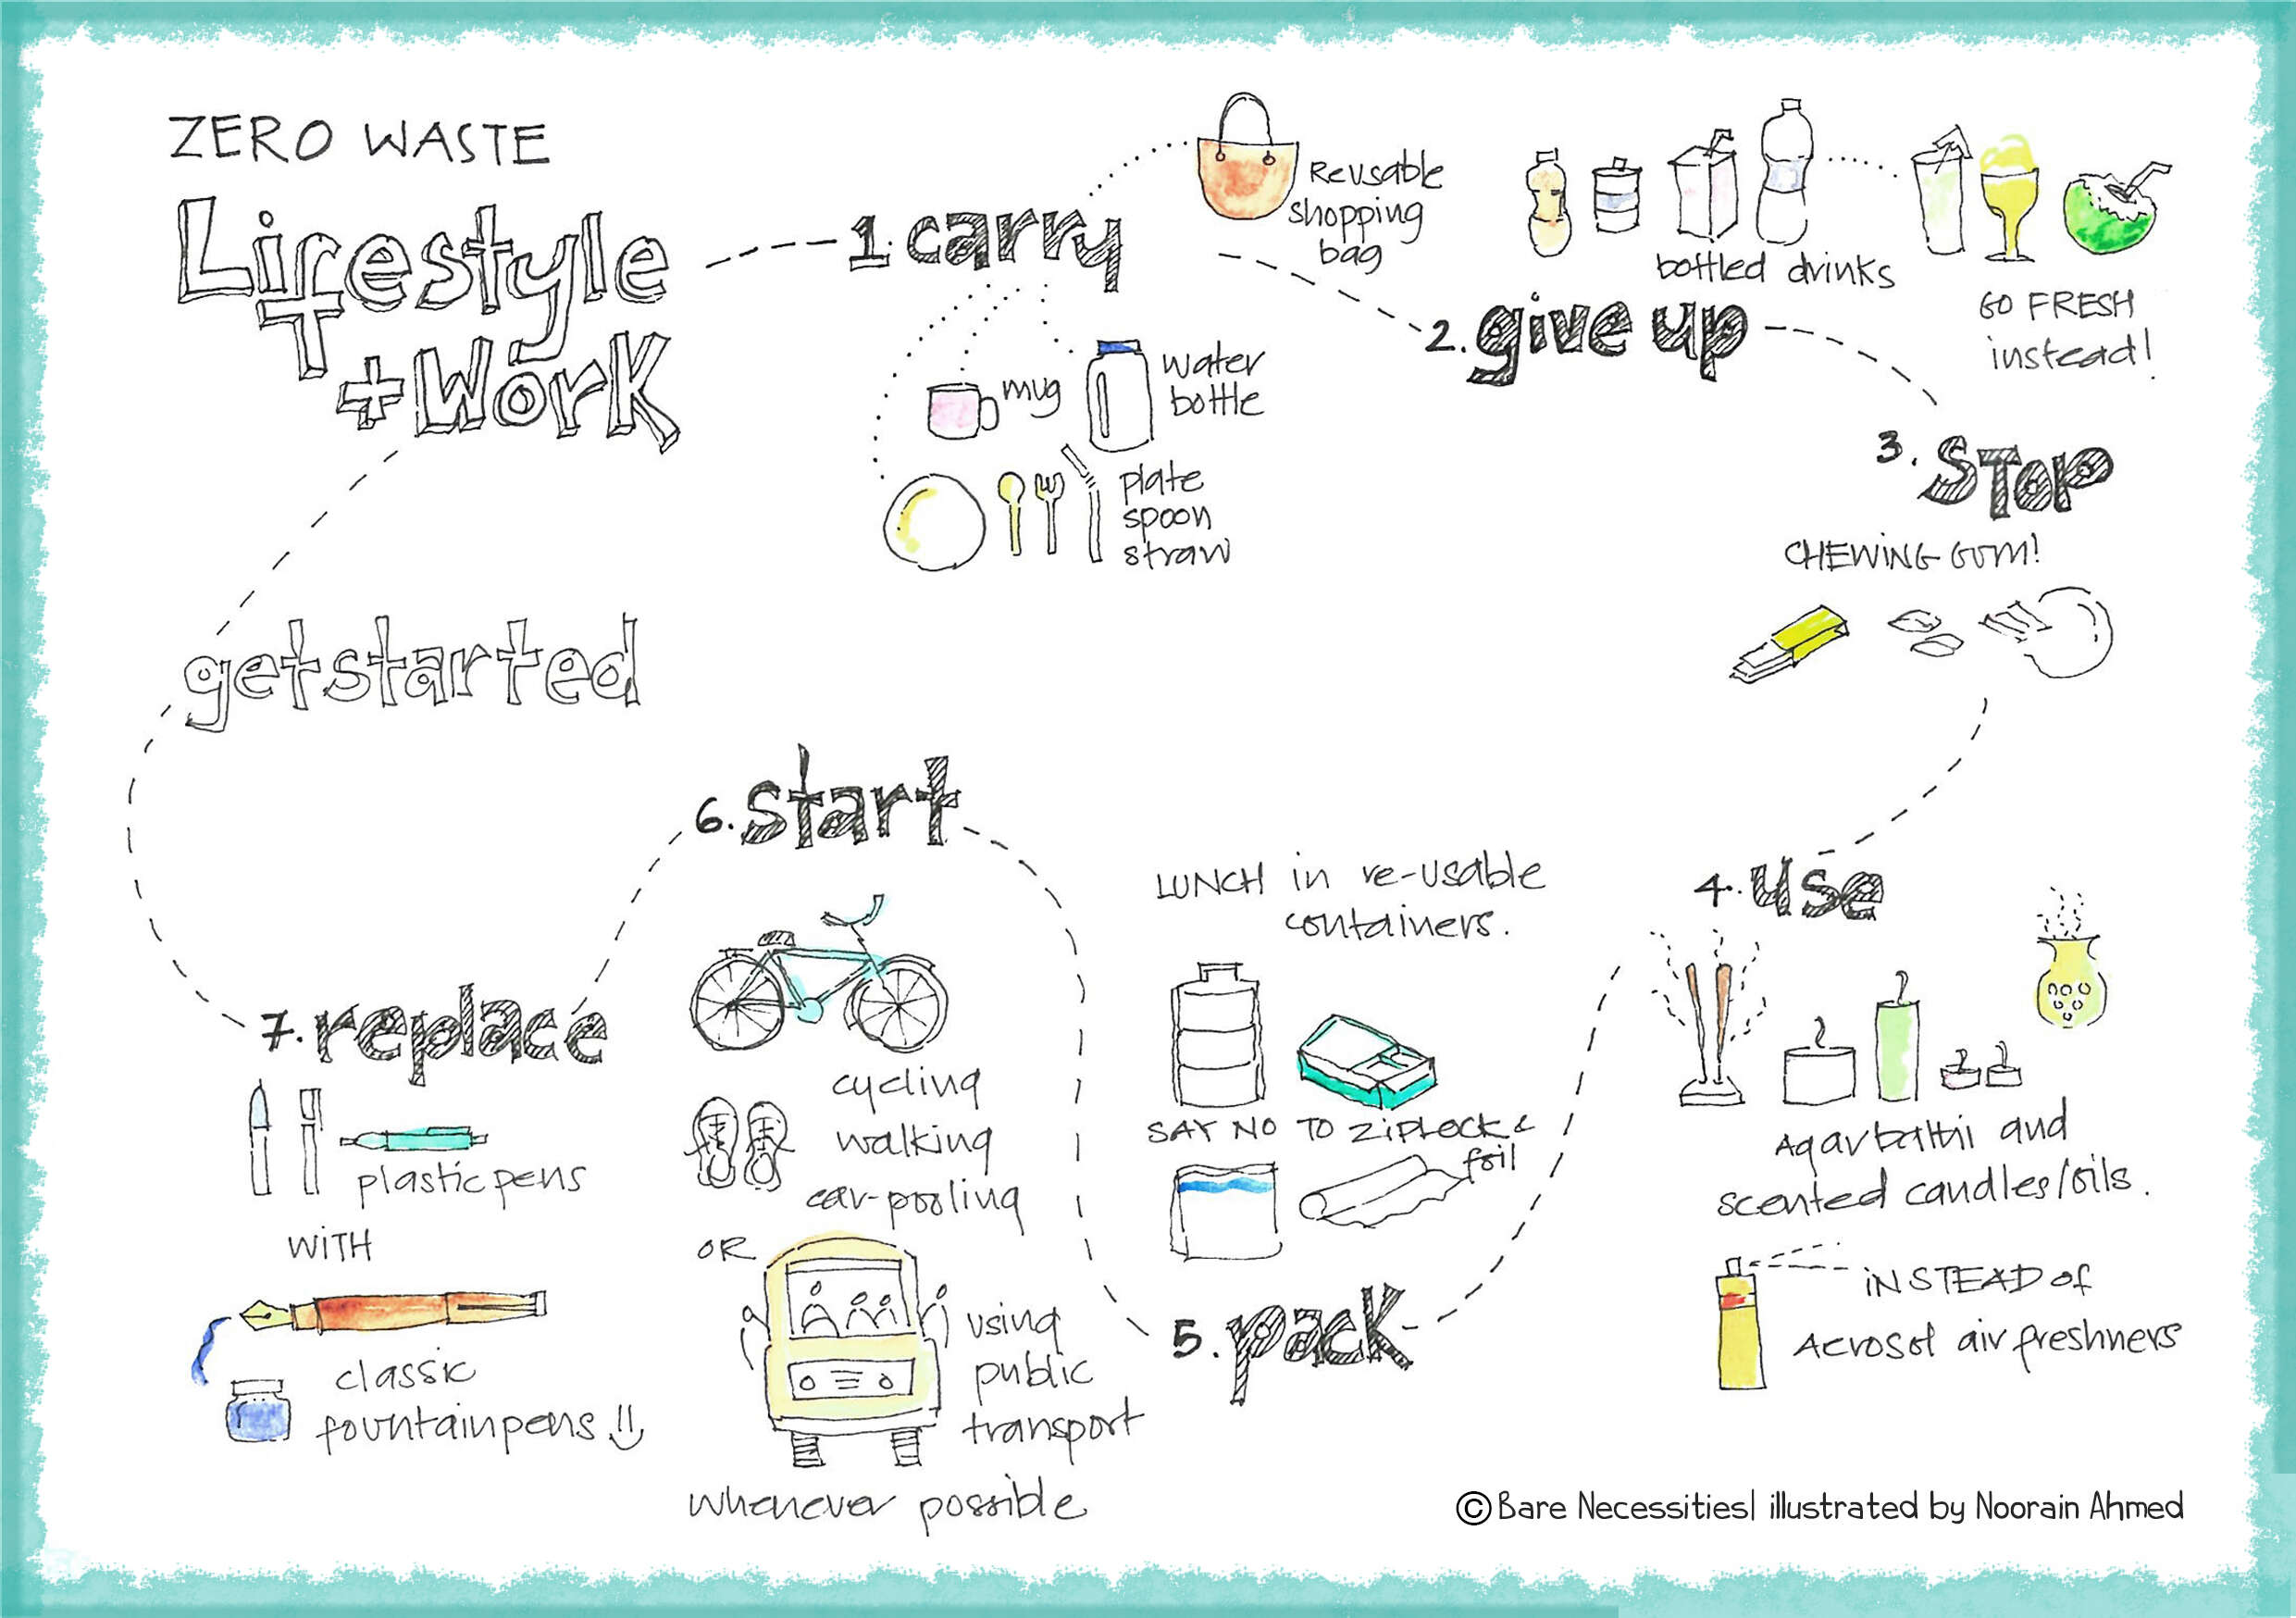 ZERO WASTE
Lifestyle
+ Work
getstarted
1. carry
Reusable
shopping
bag
mug
water
bottle
plate
spoon
straw
2. give up
bottled drinks
GO FRESH
instead!
3. STOP
CHEWING GUM!
4. use
Agarbathi and
scented candles/oils.
INSTEAD of
Aerosol air freshners
5. pack
LUNCH in re-usable
containers.
SAY NO TO ZIPLOCK &
foil
6. start
cycling
walking
car-pooling
OR
using
public
transport
whenever possible
7. replace
plastic pens
WITH
classic
fountain pens
© Bare Necessities| illustrated by Noorain Ahmed